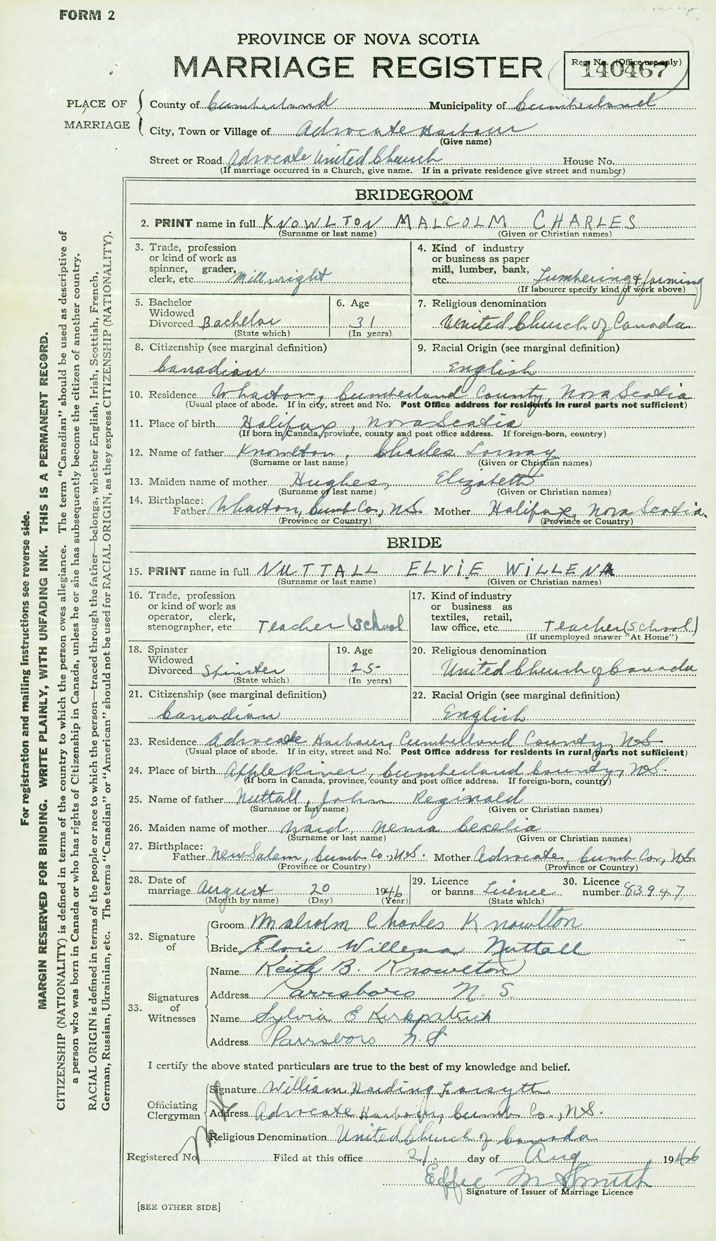 FORM 2
PROVINCE OF NOVA SCOTIA
MARRIAGE REGISTER
Reg. No. (Office use only)
140467
PLACE OF MARRIAGE
County of Cumberland Municipality of Cumberland
City, Town or Village of Advocate Harbour
(Give name)
Street or Road Advocate United Church House No.
(If marriage occurred in a Church, give name. If in a private residence give street and number)
BRIDEGROOM
2. PRINT name in full KNOWLTON MALCOLM CHARLES
(Surname or last name) (Given or Christian names)
3. Trade, profession or kind of work as spinner, grader, clerk, etc. Millwright
4. Kind of industry or business as paper mill, lumber, bank, etc. Lumbering & farming
(If labourer specify kind of work above)
5. Bachelor Widowed Divorced Bachelor
(State which)
6. Age 31
(In years)
7. Religious denomination
United Church of Canada
8. Citizenship (see marginal definition)
Canadian
9. Racial Origin (see marginal definition)
English
10. Residence Wharton, Cumberland County, Nova Scotia
(Usual place of abode. If in city, street and No. Post Office address for residents in rural parts not sufficient)
11. Place of birth Halifax, Nova Scotia
(If born in Canada, province, county and post office address. If foreign-born, country)
12. Name of father Knowlton, Charles
(Surname or last name) (Given or Christian names)
13. Maiden name of mother Hughes, Elizabeth
(Surname or last name) (Given or Christian names)
14. Birthplace: Father Wharton, Cumb Co., N.S. Mother Halifax, Nova Scotia.
(Province or Country) (Province or Country)
BRIDE
15. PRINT name in full NUTTALL ELVIE WILLENA
(Surname or last name) (Given or Christian names)
16. Trade, profession or kind of work as operator, clerk, stenographer, etc Teacher (School
17. Kind of industry or business as textiles, retail, law office, etc. Teacher (School)
(If unemployed answer "At Home")
18. Spinster Widowed Divorced Spinster
(State which)
19. Age 25
(In years)
20. Religious denomination
United Church of Canada
21. Citizenship (see marginal definition)
Canadian
22. Racial Origin (see marginal definition)
English
23. Residence Advocate Harbour, Cumberland County, N.S.
(Usual place of abode. If in city, street and No. Post Office address for residents in rural parts not sufficient)
24. Place of birth Apple River, Cumberland County, N.S.
(If born in Canada, province, county and post office address. If foreign-born, country)
25. Name of father Nuttall, John Reginald
(Surname or last name) (Given or Christian names)
26. Maiden name of mother Ward, Cecelia
(Surname or last name) (Given or Christian names)
27. Birthplace: Father New Salem, Cumb Co., N.S. Mother Advocate, Cumb Co., N.S.
(Province or Country) (Province or Country)
28. Date of marriage August 20 1946
(Month by name) (Day) (Year)
29. Licence or banns Licence
(State which)
30. Licence number 83947
32. Signature of
Groom Malcolm Charles Knowlton
Bride Elvie Willena Nuttall
33. Signatures of Witnesses
Name Keith B. Knowlton
Address Parrsboro N. S
Name Sylvia E Kirkpatrick
Address Parrsboro N.S
I certify the above stated particulars are true to the best of my knowledge and belief.
Officiating Clergyman
Signature William Harding Forsyth
Address Advocate Harbour, Cumb Co., N.S.
Religious Denomination United Church of Canada
Registered No. Filed at this office 21 day of Aug 1946
Effie M Smith
Signature of Issuer of Marriage Licence
[SEE OTHER SIDE]
For registration and mailing instructions see reverse side.
MARGIN RESERVED FOR BINDING. WRITE PLAINLY, WITH UNFADING INK. THIS IS A PERMANENT RECORD.
CITIZENSHIP (NATIONALITY) is defined in terms of the country to which the person owes allegiance. The term "Canadian" should be used as descriptive of
a person who was born in Canada or who has rights of Citizenship in Canada, unless he or she has subsequently become the citizen of another country.
RACIAL ORIGIN is defined in terms of the people or race to which the person—traced through the father—belongs, whether English, Irish, Scottish, French,
German, Russian, Ukrainian, etc. The terms "Canadian" or "American" should not be used for RACIAL ORIGIN, as they express CITIZENSHIP (NATIONALITY).